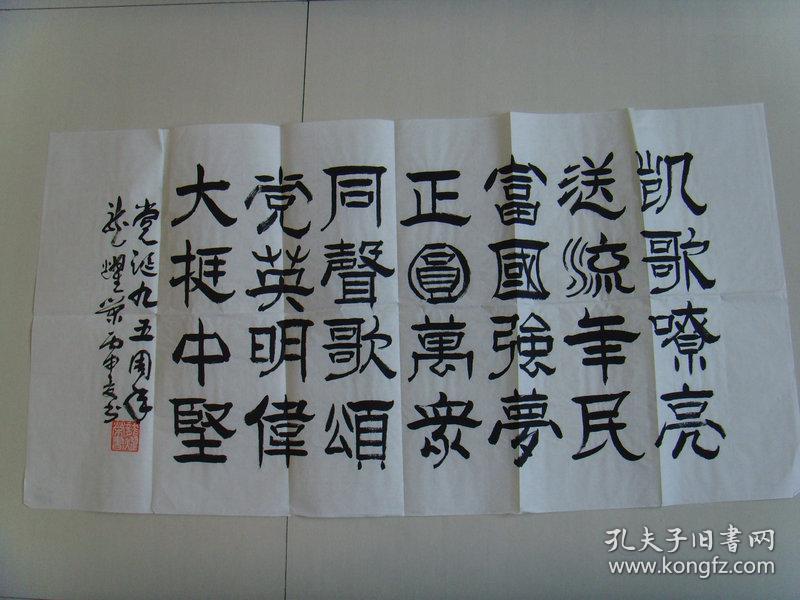 凯歌嘹亮
送流年民
富國強夢
正圓萬眾
同聲歌頌
党英明偉
大挺中堅
党诞九五周年
龙耀荣丙申夏书
孔夫子旧书网
www.kongfz.com